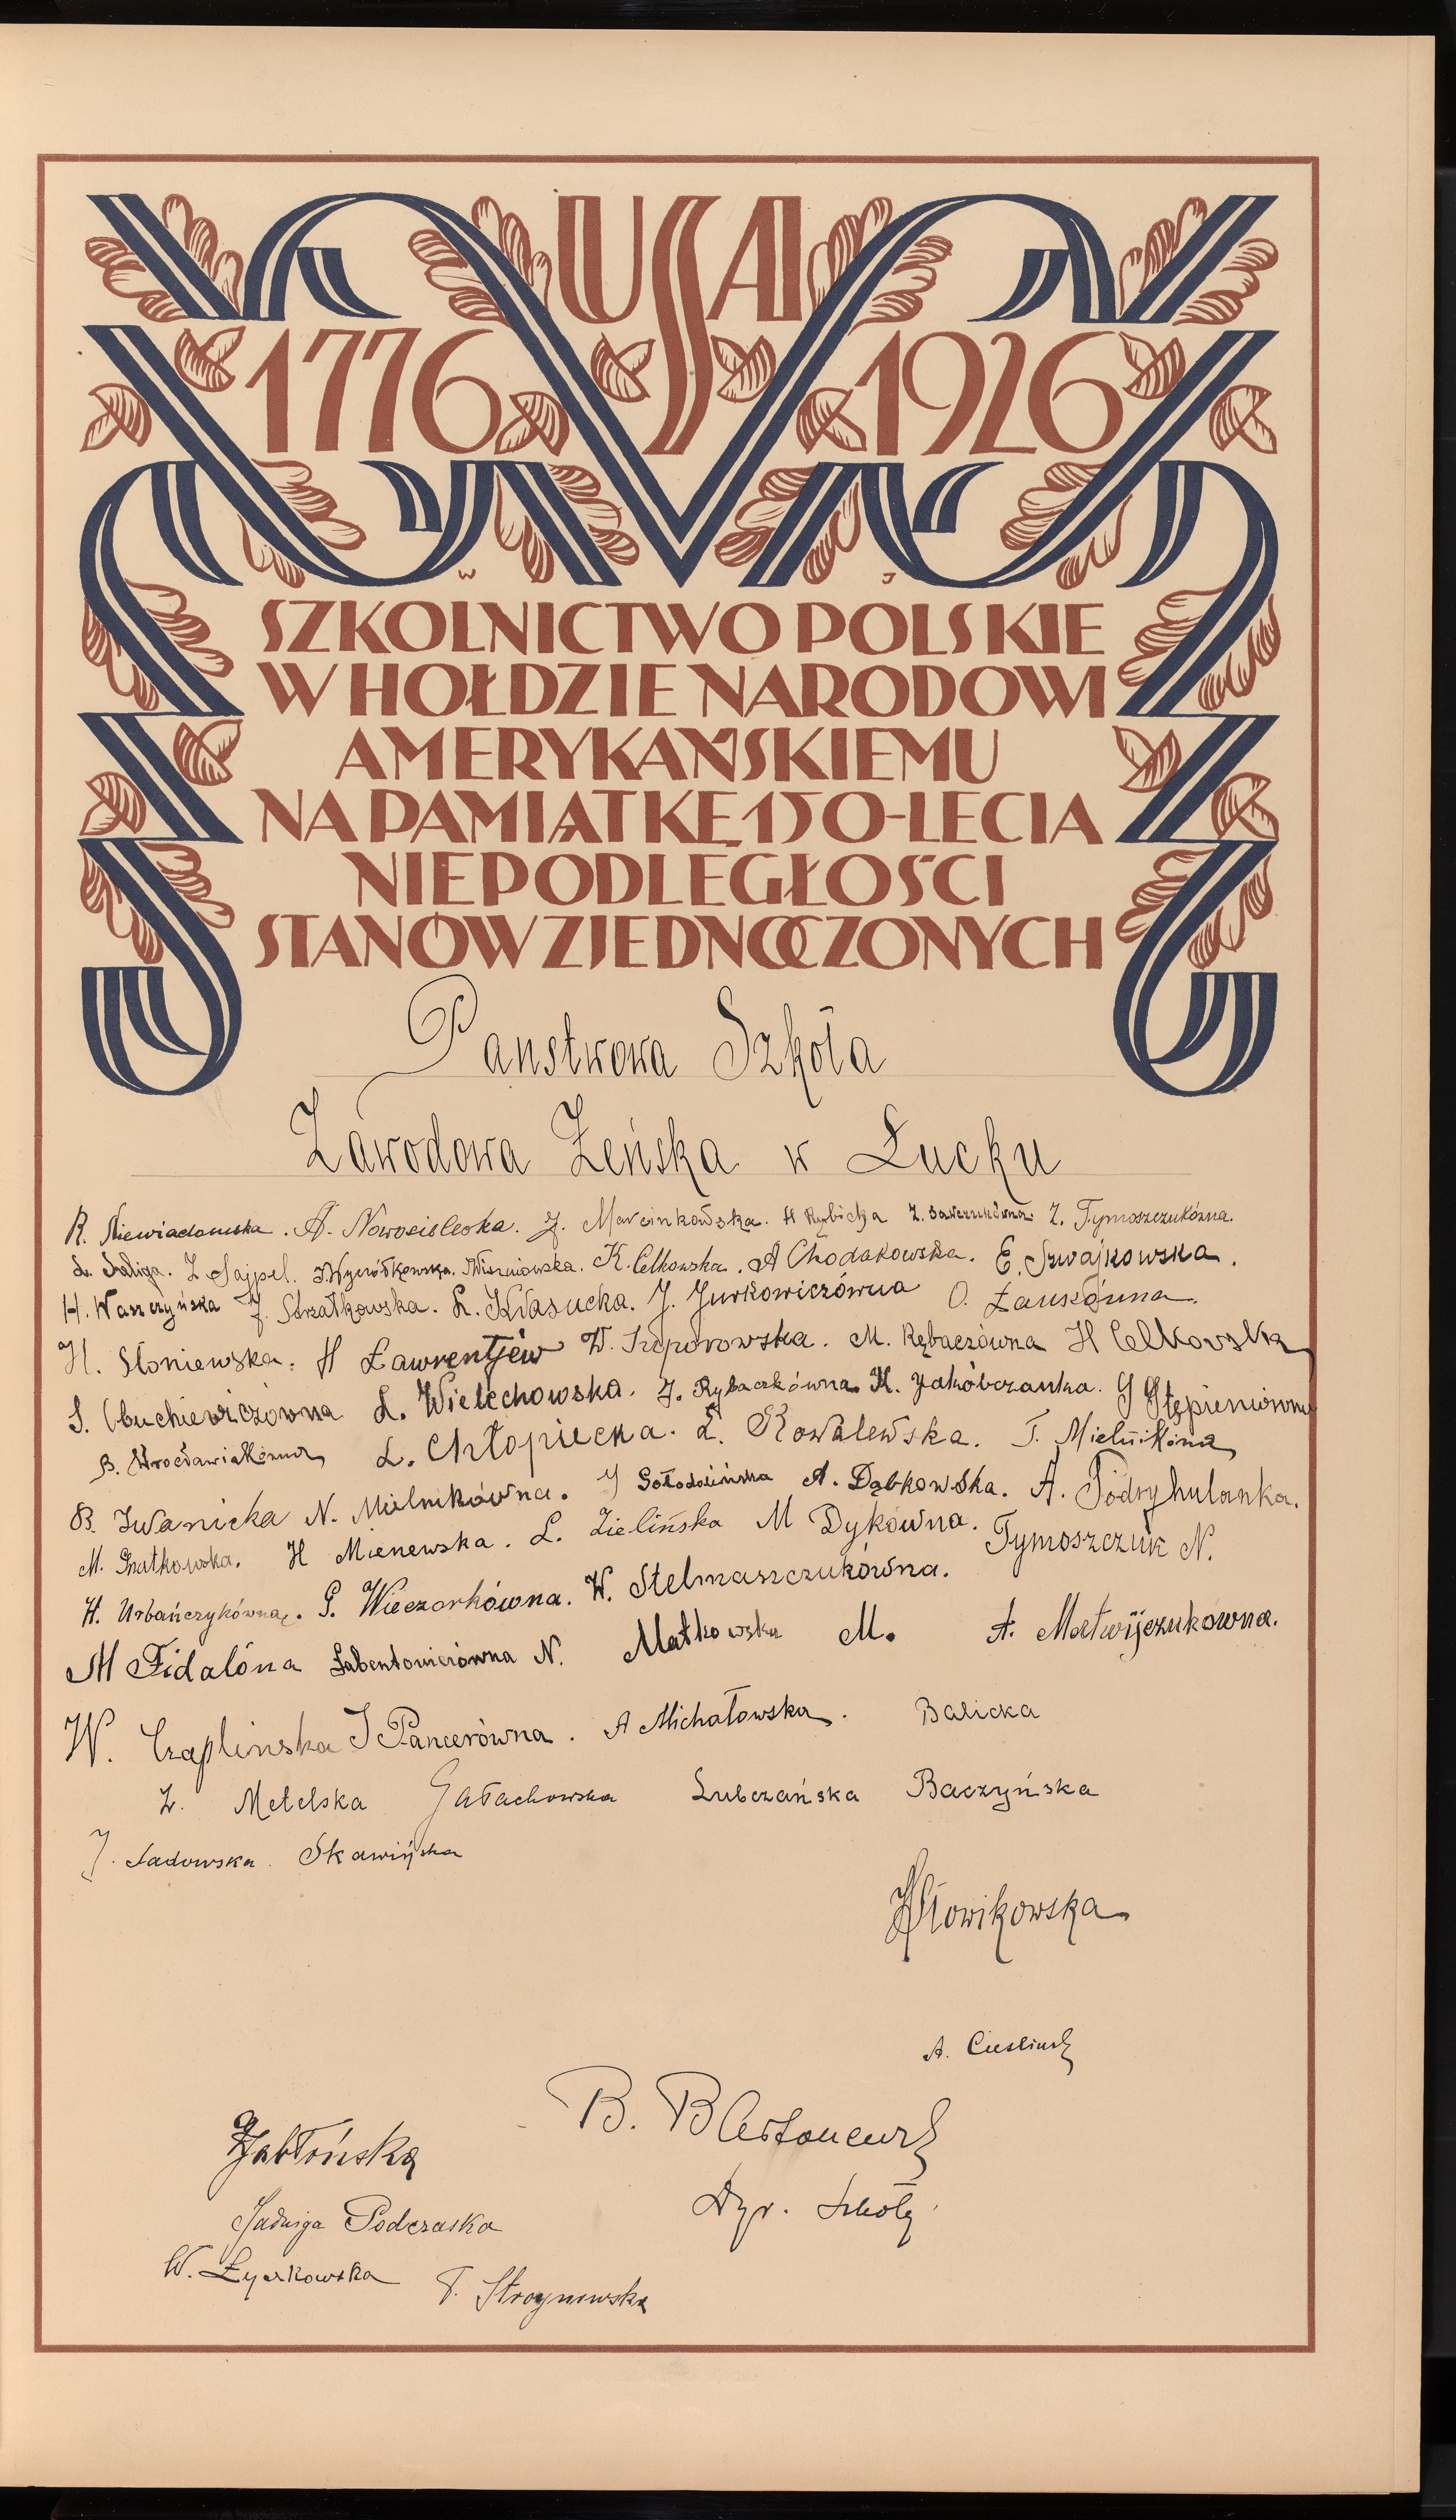 USA
1776 1926
W J
SZKOLNICTWO POLSKIE
W HOŁDZIE NARODOWI
AMERYKAŃSKIEMU
NA PAMIĄTKĘ 150-LECIA
NIEPODLEGŁOŚCI
STANÓW ZJEDNOCZONYCH
Panstwowa Szkoła
Zawodowa Żeńska w Łucku
R. Niewiadomska. A. Nowosielska. J. Marcinkowska. H Rybicka Z. Sawczukówna Z. Tymoszczukówna.
L. Saliga. Z Sajpel. Wiszniowska. K. Celkowska. A Chodakowska. E. Szwajkowska.
H. Waszczyńska J. Strzałkowska. L. Kwasucka. J. Jurkowiczówna O.
H. Słoniewska. H Ławrentjew W. Szeporowska. M. Rębaczówna H Celkovska
S. Obuchiewiczówna L. Wielechowska. J. Rybaczkówna. H. Jakóbczanka. J Stępieniówna
B. Wrocławiakówna L. Chłopiecka. L. Kowalewska. T. Mielnikówna
B. Iwanicka N. Mielnikówna. J Gołodolińska A. Dąbkowska. A. Podryhulanka.
M. Gnatkowska. H Mienewska. L. Zielińska M Dykówna. Tymoszczuk N.
H. Urbańczykówna. G. Wieczorkówna. W. Stelmaszczukówna.
M Fidalóna Labentowiczówna N. Matkowska M. A. Matwijczukówna.
W. Czaplinska J Pancerówna. A Michałowska. Balicka
Z. Metelska Gałachowska Lubczańska Baczyńska
J. Sadowska. Skawińska
HSłowikowska
A.
B.
Jabłońska
Dyr. Szkoły
Jadwiga Podczaska
W. Łyczkowska
T. Stroynowska